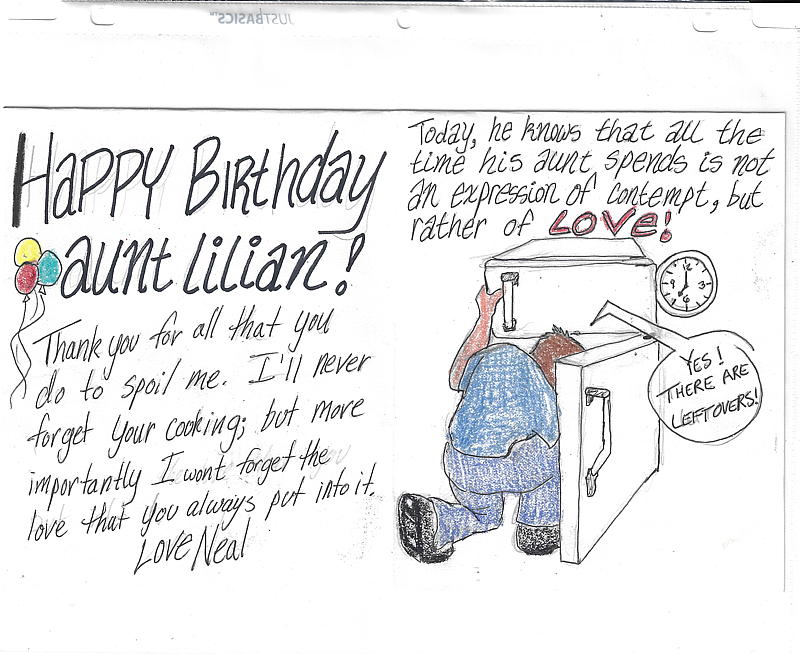 JUSTBASICS™
HAPPY BIRthday
aunt lilian!
Thank you for all that you
do to spoil me. I'll never
forget your cooking; but more
importantly I wont forget the
love that you always put into it.
Love Neal
Today, he knows that all the
time his aunt spends is not
an expression of contempt, but
rather of LOVE!
12
3
6
9
YES!
THERE ARE
LEFTOVERS!